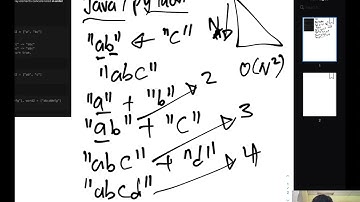 Java / Python
"ab" ← "c"
"abc"
"a" + "b" 2
"ab" + "c" 3
"abc" + "d" 4
"abcd"
N
O(N²)